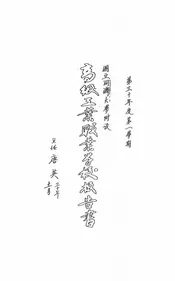 第三十年度第一學期
國立同濟大學附設
高級工業職業學校報告書
主任 唐英 三十年
十月